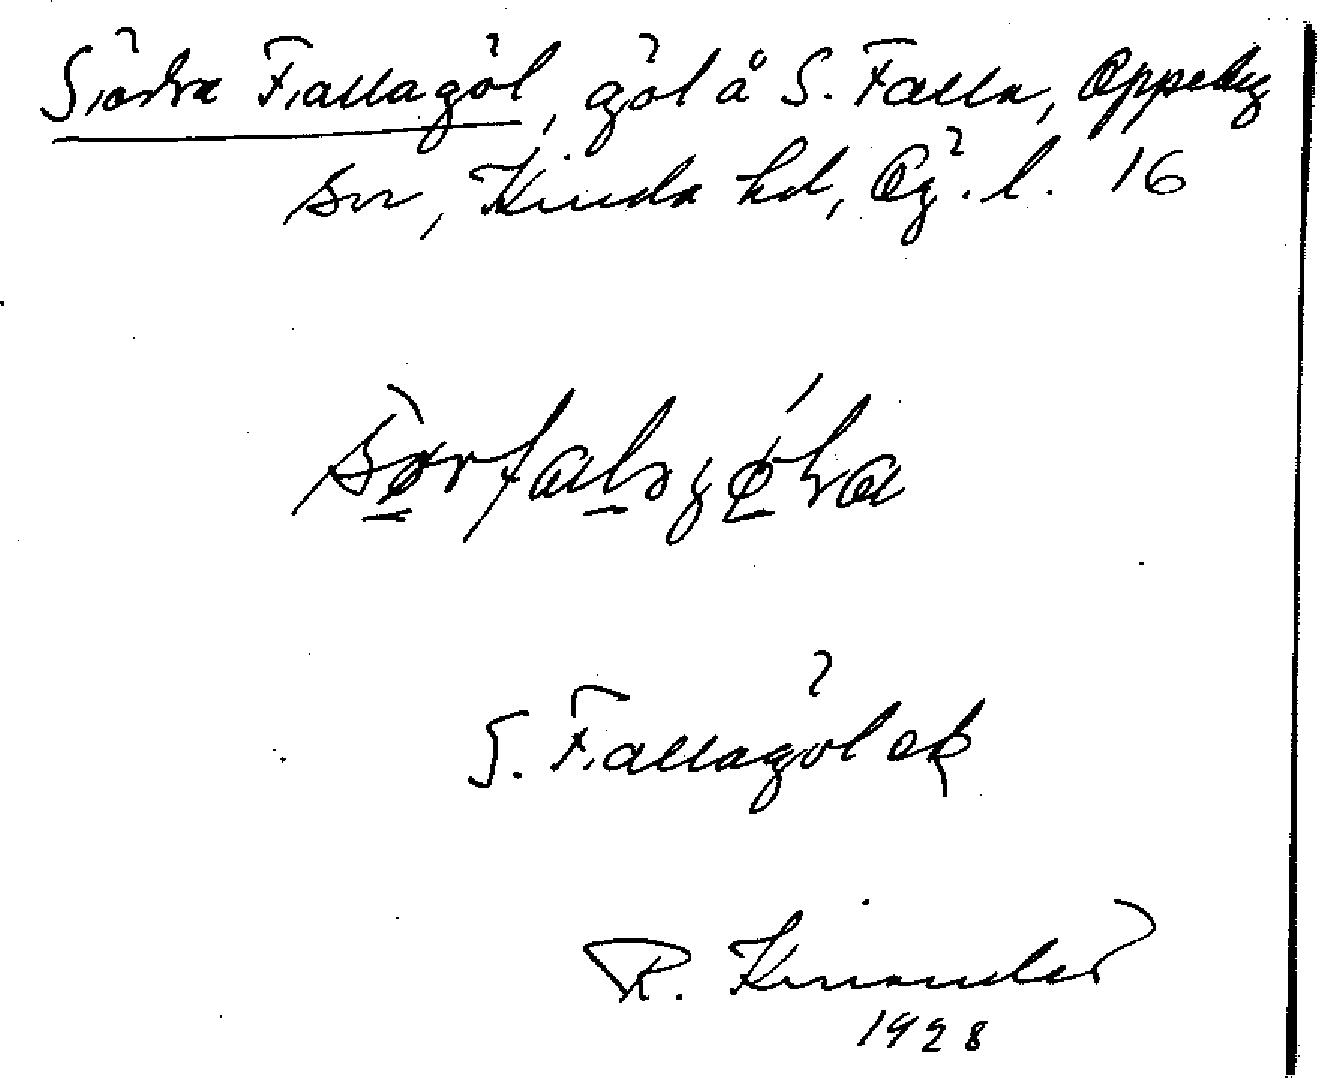 Södra Fallagöl, göl å S. Falla, Oppeby
sn, Kinda hd, Ög. l. 16
S. Fallagöl ek
R. Kinander
1928